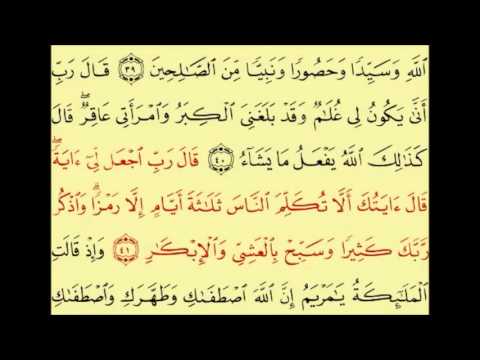 ٱللَّهِ وَسَيِّدًا وَحَصُورًا وَنَبِيًّا مِّنَ ٱلصَّـٰلِحِينَ ٣٩ قَالَ رَبِّ
أَنَّىٰ يَكُونُ لِى غُلَـٰمٌ وَقَدْ بَلَغَنِىَ ٱلْكِبَرُ وَٱمْرَأَتِى عَاقِرٌ ۖ قَالَ
كَذَٰلِكَ ٱللَّهُ يَفْعَلُ مَا يَشَآءُ ٤٠ قَالَ رَبِّ ٱجْعَل لِّىٓ ءَايَةً ۖ
قَالَ ءَايَتُكَ أَلَّا تُكَلِّمَ ٱلنَّاسَ ثَلَـٰثَةَ أَيَّامٍ إِلَّا رَمْزًا ۗ وَٱذْكُر
رَّبَّكَ كَثِيرًا وَسَبِّحْ بِٱلْعَشِىِّ وَٱلْإِبْكَـٰرِ ٤١ وَإِذْ قَالَتِ
ٱلْمَلَـٰٓئِكَةُ يَـٰمَرْيَمُ إِنَّ ٱللَّهَ ٱصْطَفَىٰكِ وَطَهَّرَكِ وَٱصْطَفَىٰكِ